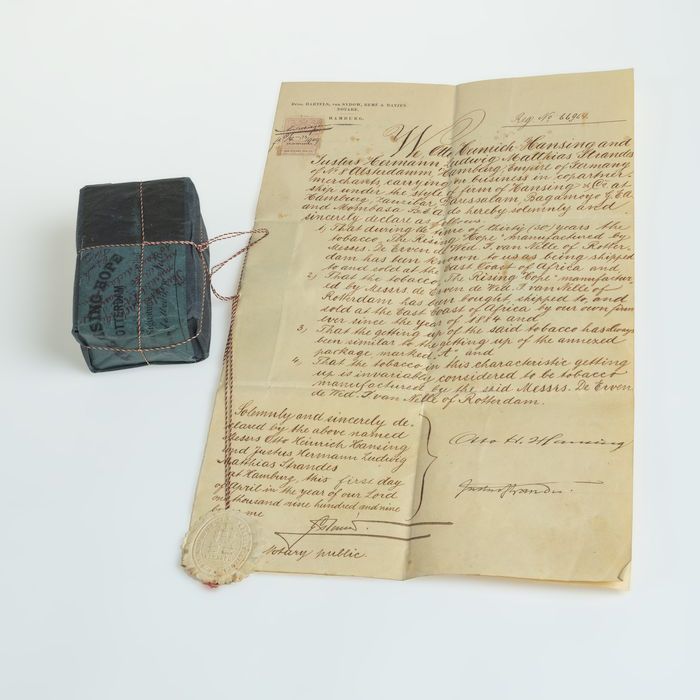 DRES. BARTELS, VON SYDOW, REMÉ & RATJEN
NOTARE.
HAMBURG.
Reg. No 66904.
We, Otto Heinrich Hansing and
Justus Hermann Ludwig Matthias Strandes
of No 8 Alsterdamm Hamburg, Empire of Germany
merchants carrying on business in copartner-
ship under the style or firm of Hansing & Co. at
Hamburg, Zanzibar, Daressalam, Bagamoyo
and Mombasa do hereby solemnly and
sincerely declare as follows:
1) That during the time of thirty (30) years the
tobacco "The Rising Hope" manufactured by
Messrs. De Erven de Wed. J. van Nelle of Rotter-
dam has been known to us as being shipped
to and sold at the East Coast of Africa and
2) That the tobacco "The Rising Hope" manufactur-
ed by Messrs de Erven de Wed. J. van Nelle of
Rotterdam has been bought, shipped to, and
sold at the East Coast of Africa by our own firm
ever since the year of and
3) That the getting up of the said tobacco has always
been similar to the getting up of the annexed
package marked "A" and
4) That the tobacco in this characteristic getting
up is invariably considered to be tobacco
manufactured by the said Messrs. De Erven
de Wed. J. van Nelle of Rotterdam.
Solemnly and sincerely de-
clared by the above named
Messrs Otto Heinrich Hansing
and Justus Hermann Ludwig
Matthias Strandes
at Hamburg, this first day
of April in the year of our Lord
one thousand nine hundred and nine
before me
Notary public.
Otto H. Hansing
Justus Strandes.
RISING-HOPE
ROTTERDAM